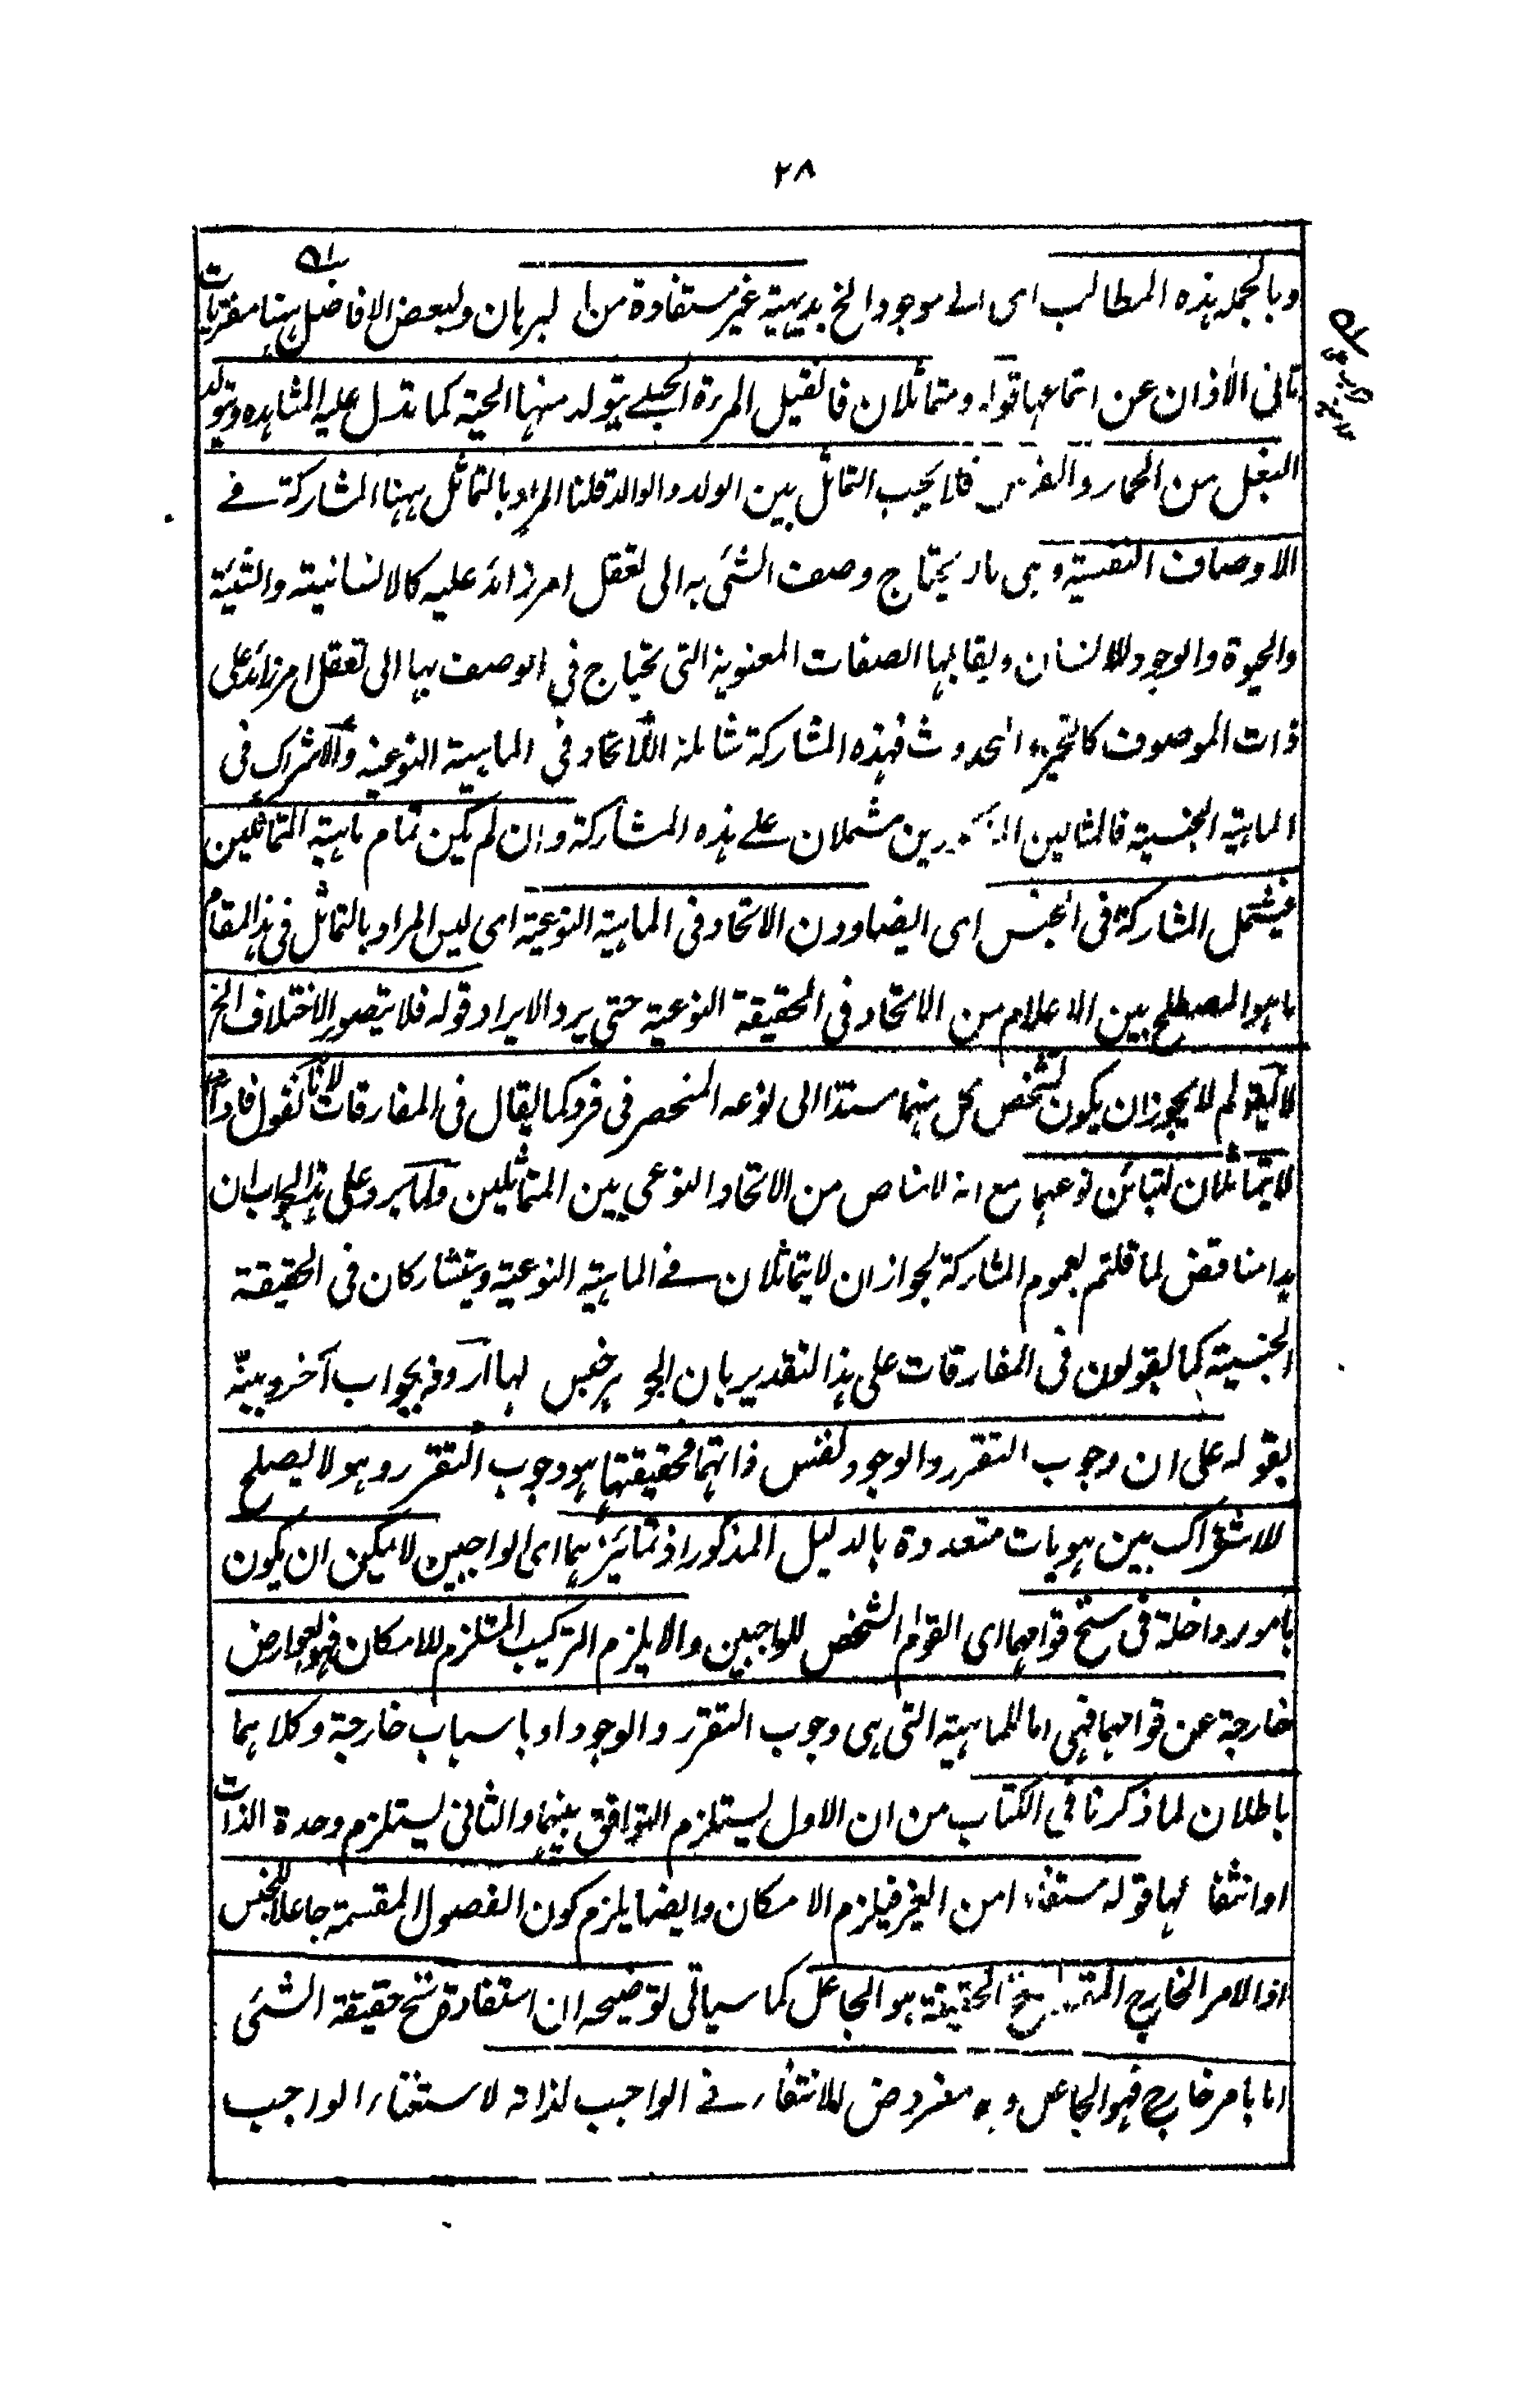 ٢٨
وبالجملة هذه المطالب اى اله موجود الخ بديهية غير مستفادة من البرهان ولبعض الافاضل ههنا مفتريات
تابى الاذان عن استماعها قوله ومتماثلان فان قيل المرة الجبلى يتولد منها الحية كما تدل عليه المشاهده ويتولد
البغل من الحمار والفرس فلا يجب التماثل بين الولد والوالد قلنا المراد بالتماثل ههنا المشاركة فى
الاوصاف النفسية وهى ما لا يحتاج وصف الشئ به الى تعقل امر زائد عليه كالانسانية والشيئة
والحيوة والوجود للانسان ويقابلها الصفات المعنوية التى تحتاج فى الوصف بها الى تعقل امر زائد على
ذات الموصوف كالتحيز والحدوث فهذه المشاركة شاملة للاتحاد فى الماهية النوعية والاشتراك فى
الماهية الجنسية فالمثالين المذكورين مشتملان على هذه المشاركة وان لم يكن تمام ماهية المتماثلين
فيشتمل المشاركة فى الجنس اى ايضا ودون الاتحاد فى الماهية النوعية اى ليس المراد بالتماثل فى هذا المقام
ما هو المصطلح بين الاعلام من الاتحاد فى الحقيقة النوعية حتى يرد الايراد قوله فلا يتصور الاختلاف الخ
لا يقال لم لا يجوز ان يكون تشخص كل منهما مستندا الى نوعه المنحصر فى فرد كما يقال فى المفارقات لانا نقول فاذا
لا يتماثلان لتبائن نوعهما مع انه لا مناص من الاتحاد النوعى بين المتماثلين ولما يرد على هذا الجواب ان
هذا مناقض لما قلتم بعموم المشاركة لجواز ان لا يتماثلان فى الماهية النوعية ويتشاركان فى الحقيقة
الجنسية كما يقولون فى المفارقات على هذا التقدير بان الجوهر جنس لها اردفه بجواب آخر وبينه
بقوله على ان وجوب التقرر والوجود نفس ذاتهما فحقيقتهما هو وجوب التقرر وهو لا يصلح
للاشتراك بين هويات متعددة بالدليل المذكور اذ تمائزهما اى الواجبين لا يمكن ان يكون
بامور داخلة فى سنخ قوامهما اى القوام الشخص للواجبين والا يلزم التركيب المستلزم للامكان فهو بعوارض
خارجة عن قوامهما فهى اما للماهية التى هى وجوب التقرر والوجود او باسباب خارجة وكلاهما
باطلان لما ذكرنا فى الكتاب من ان الاول يستلزم التوافق بينهما والثانى يستلزم وحدة الذات
او انتفائها قوله مستفادا من الغير فيلزم الامكان وايضا يلزم كون الفصول المقسمة جاعلا للجنس
اذ الامر الخارج سنخ الحقيقة هو الجاعل كما سياتى توضيحه ان استفادة سنخ حقيقة الشئى
اما بامر خارج فهو الجاعل و مفروض الانتفاء فى الواجب لذاته لاستغناء الواجب